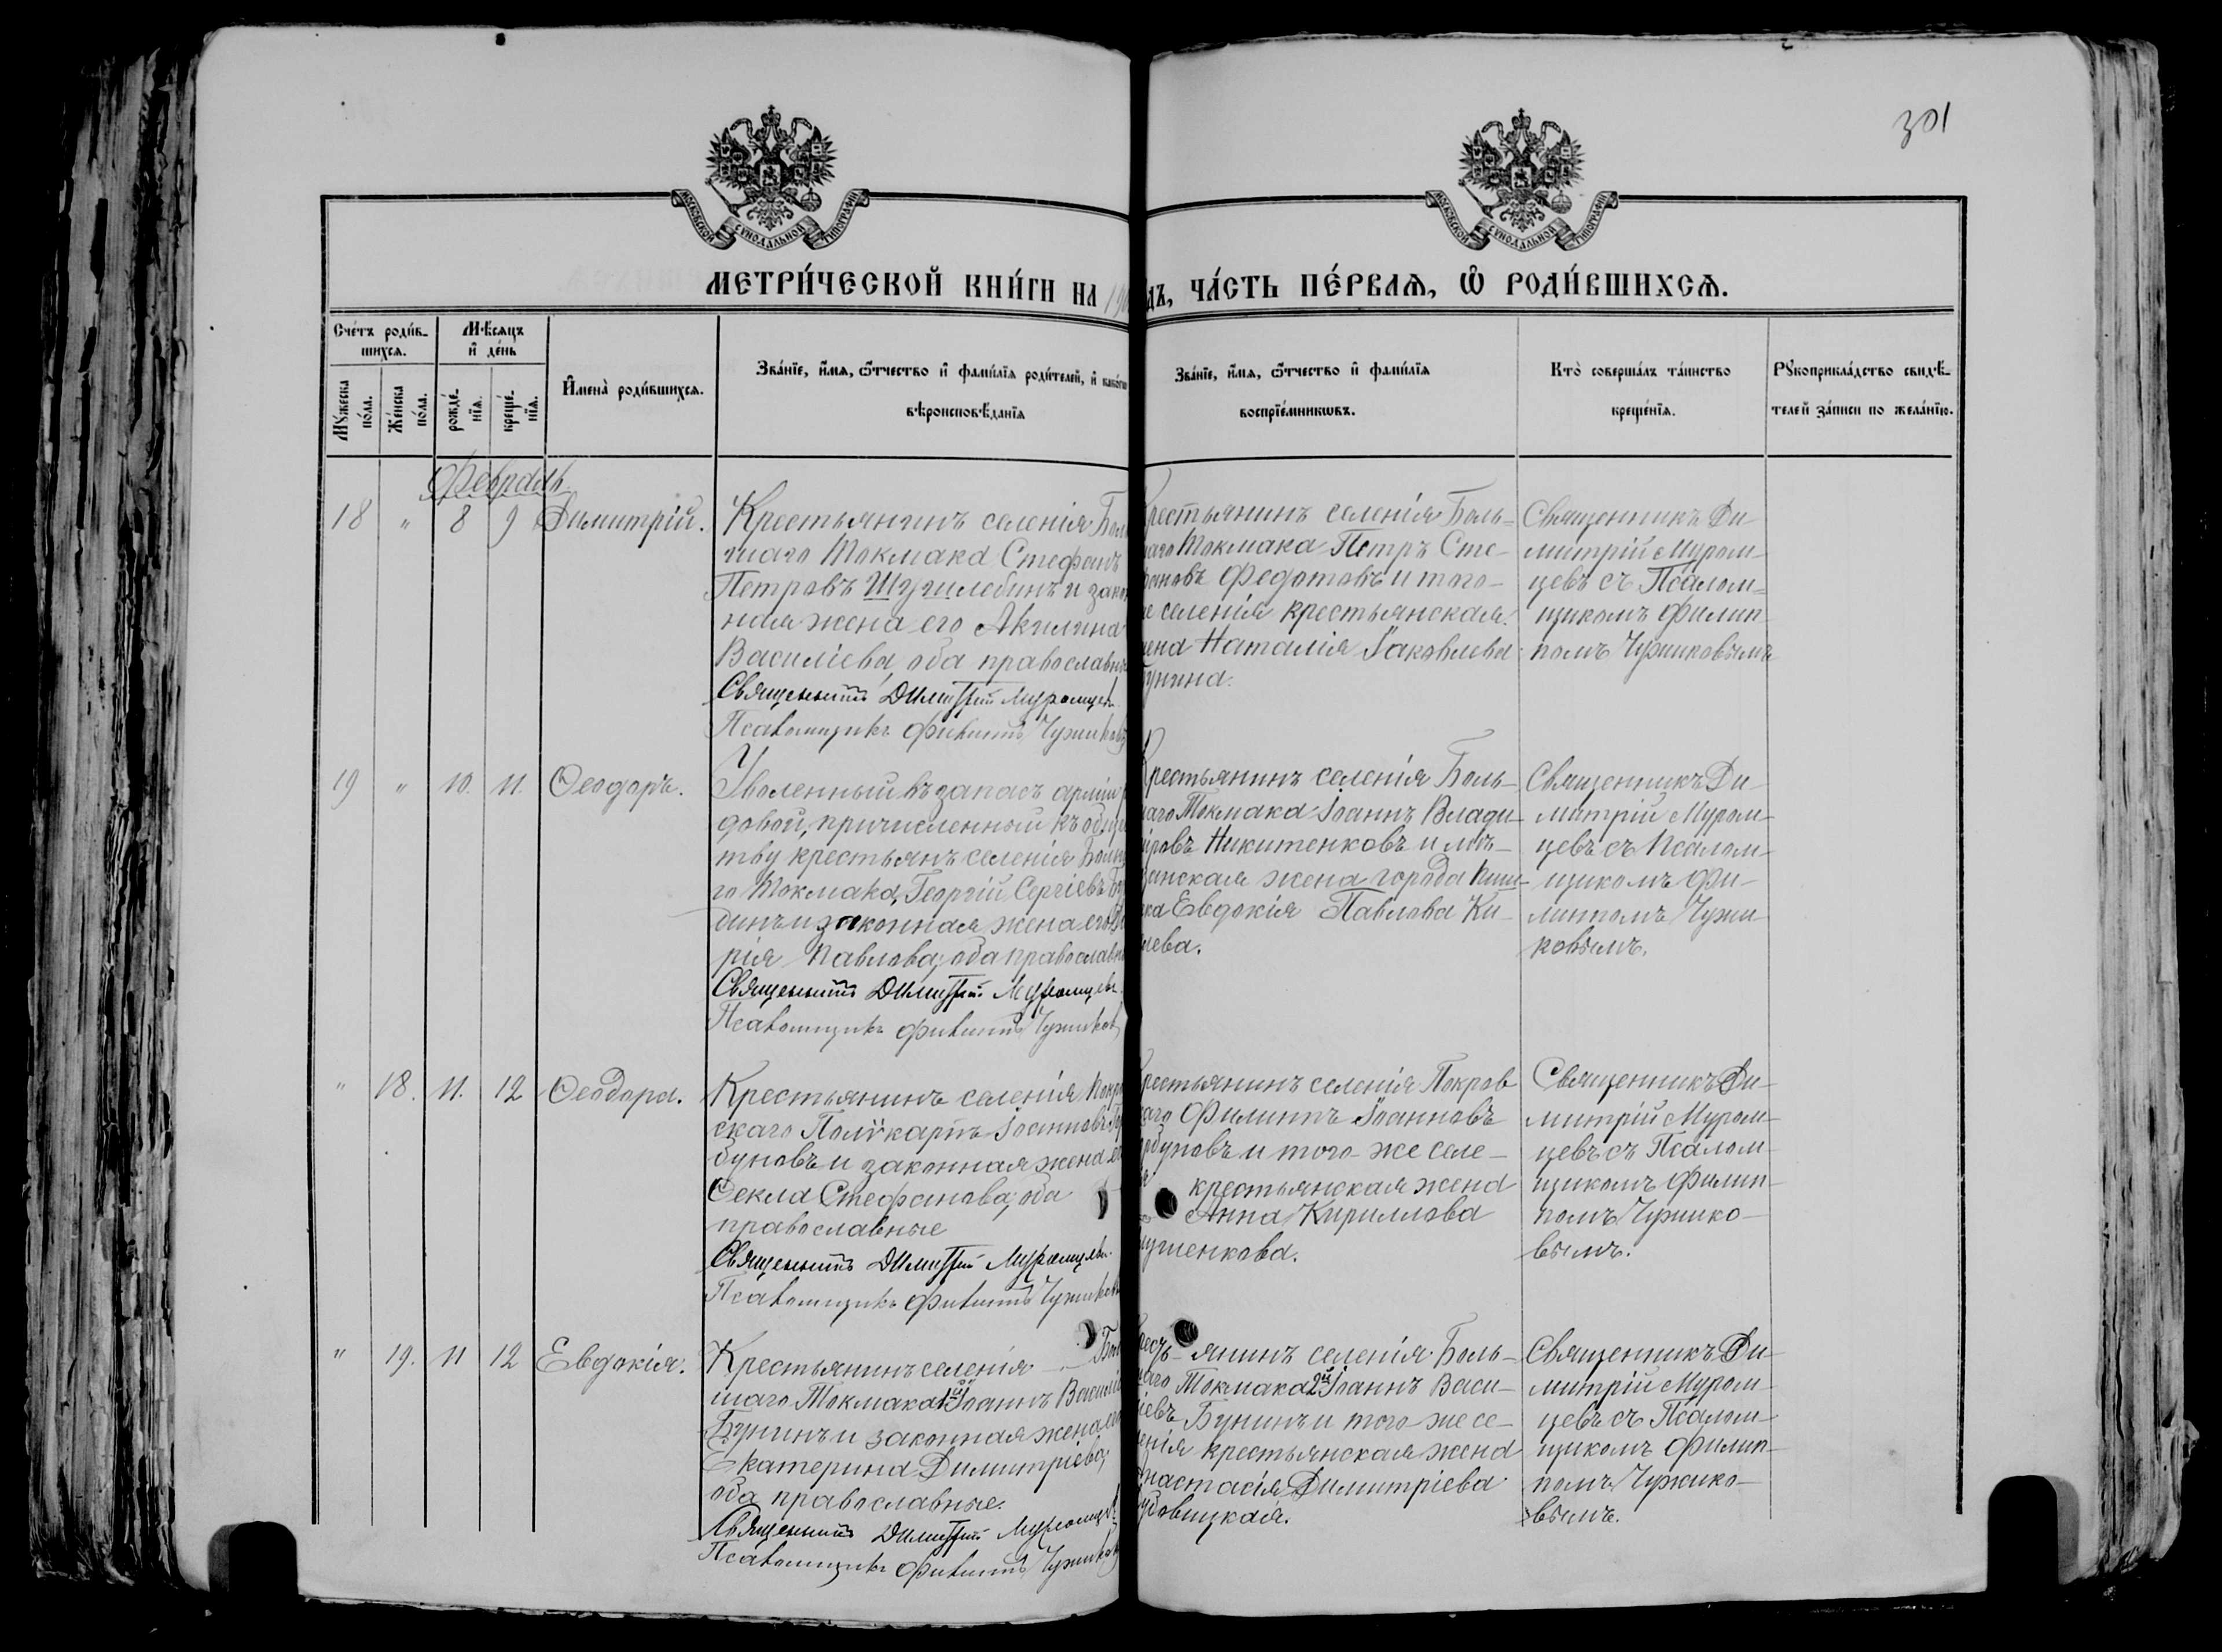 301
МОСКОВСКОЙ СѴНОДАЛЬНОЙ ТИПОГРАФІИ
МОСКОВСКОЙ СѴНОДАЛЬНОЙ ТИПОГРАФІИ
МЕТРИ́ЧЕСКОЙ КНИ́ГИ НА 190
дъ, ЧА́СТЬ ПЕ́РВАѦ, Ѡ҆ РОДИ́ВШИХСѦ.
Сче́тъ роди́в-
шихсѧ.
Мѣ́сѧцъ
и҆ де́нь
Мꙋ́жеска
по́ла.
Же́нска
по́ла.
рожде́-
нїѧ.
креще́-
нїѧ.
И҆мена̀ роди́вшихсѧ.
Зва́нїе, и҆́мѧ, ѻ҆́тчество и҆ фами́лїѧ роди́телей, и҆ како́гѡ
вѣроисповѣ́данїѧ
Зва́нїе, и҆́мѧ, ѻ҆́тчество и҆ фами́лїѧ
воспрїе́мникѡвъ.
Кто̀ соверша́лъ та́инство
креще́нїѧ.
Рꙋкоприкла́дство свидѣ́-
телей за́писи по жела́нїю.
Февраль.
18 " 8 9 Димитрій.
Крестьянинъ селенія Боль
шаго Токмака Стефанъ
Петровъ Шушлебинъ и закон
ная жена его Акилина
Василіева, оба православные
Священникъ Димитрій Муромцевъ.
Псаломщикъ Филиппъ Чужиковъ
рестьянинъ селенія Боль-
аго Токмака Петръ Сте-
фановъ Федотовъ и того-
е селенія крестьянская
ена Наталія Іаковлева
унина.
Священникъ Ди-
митрій Муром-
цевъ съ Псалом-
щикомъ Филип-
помъ Чужиковымъ
19 " 10. 11. Ѳеодоръ.
Уволенный въ запасъ арміи р
довой, причисленный къ общес
тву крестьянъ селенія Больша
го Токмака, Георгій Сергіевъ
динъ и законная жена его
рія Павлова, оба православные
Священникъ Димитрій Муромцевъ.
Псаломщикъ Филиппъ Чужиковъ
Крестьянинъ селенія Боль-
аго Токмака Іоаннъ Влади-
іровъ Никитенковъ и мѣ-
щанская жена города
ка Евдокія Павлова Ки-
лева.
Священникъ Ди-
митрій Муром-
цевъ съ Псалом-
щикомъ Фи-
липпомъ Чужи-
ковымъ.
" 18. 11. 12 Ѳеодора.
Крестьянинъ селенія Покров
скаго Полѵкарпъ Іоанновъ Го
буновъ и законная жена его
Ѳекла Стефанова, оба
православные
Священникъ Димитрій Муромцевъ.
Псаломщикъ Филиппъ Чужиковъ
рестьянинъ селенія Покров
каго Филиппъ Іоанновъ
обуновъ и того-же селе-
крестьянская жена
Анна Кириллова
ушенкова.
Священникъ Ди-
митрій Муром-
цевъ съ Псалом-
щикомъ Филип-
помъ Чужико-
вымъ.
" 19. 11 12 Евдокія.
Крестьянинъ селенія Боль
шаго Токмака 1й Іоаннъ Василіе
Бунинъ и законная жена его
Екатерина Димитріева,
оба православные.
Священникъ Димитрій Муромцевъ
Псаломщикъ Филиппъ Чужиковъ
ресть-янинъ селенія Боль-
аго Токмака 2й Іоаннъ Васи-
ліевъ Бунинъ и того же се-
ленія крестьянская жена
Анастасія Димитріева
удовицкая.
Священникъ Ди-
митрій Муром-
цевъ съ Псалом-
щикомъ Филип-
помъ Чужико-
вымъ.